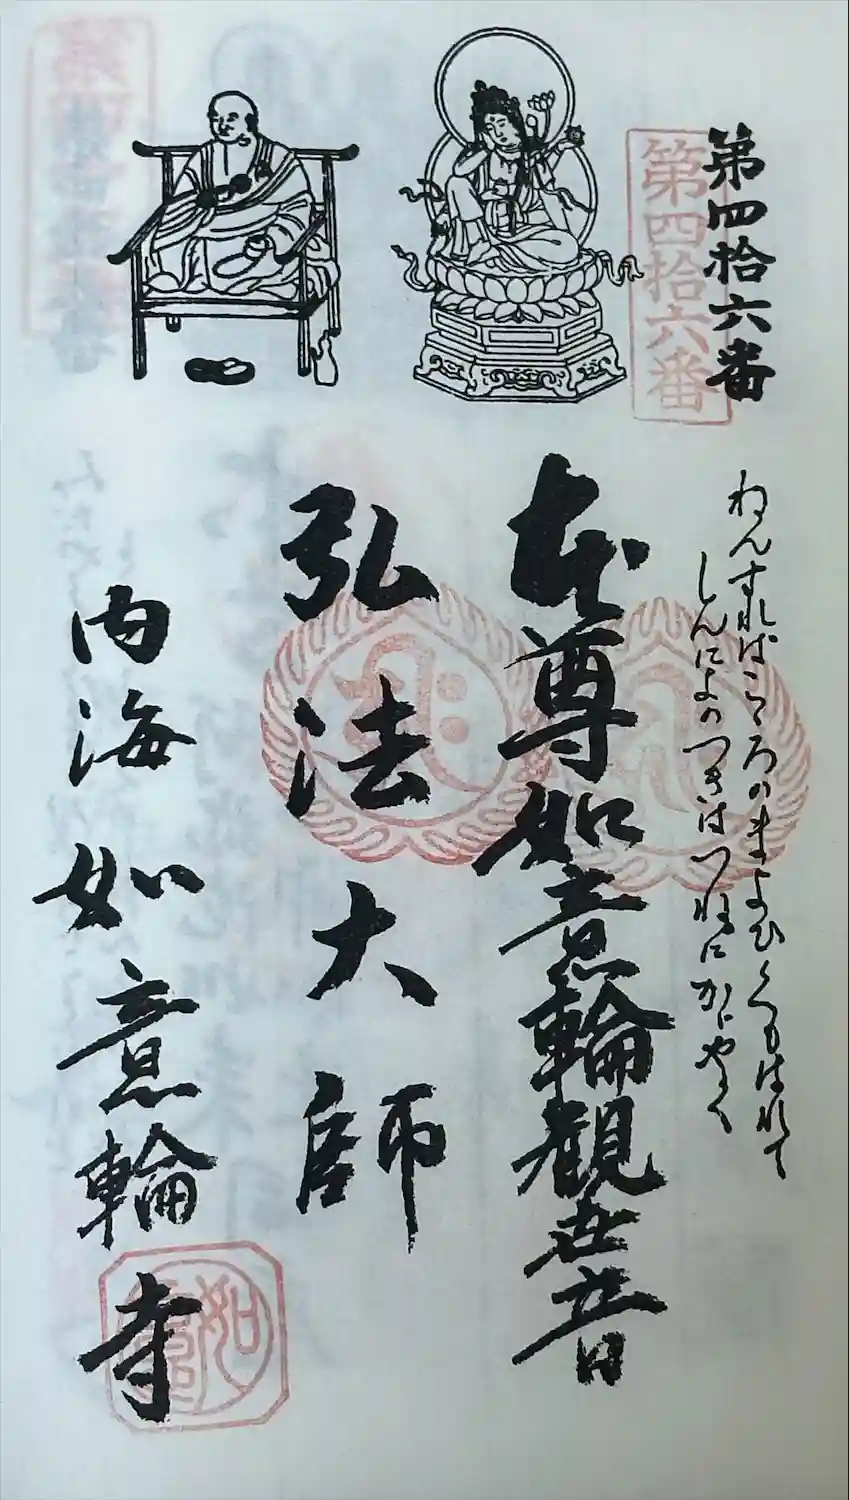 第四拾六番
第四拾六番
ねんすればこゝろのまよひくもはれて
しんによのつきはつねにかゞやく
本尊如意輪観世音
弘法大師
内海如意輪寺
如